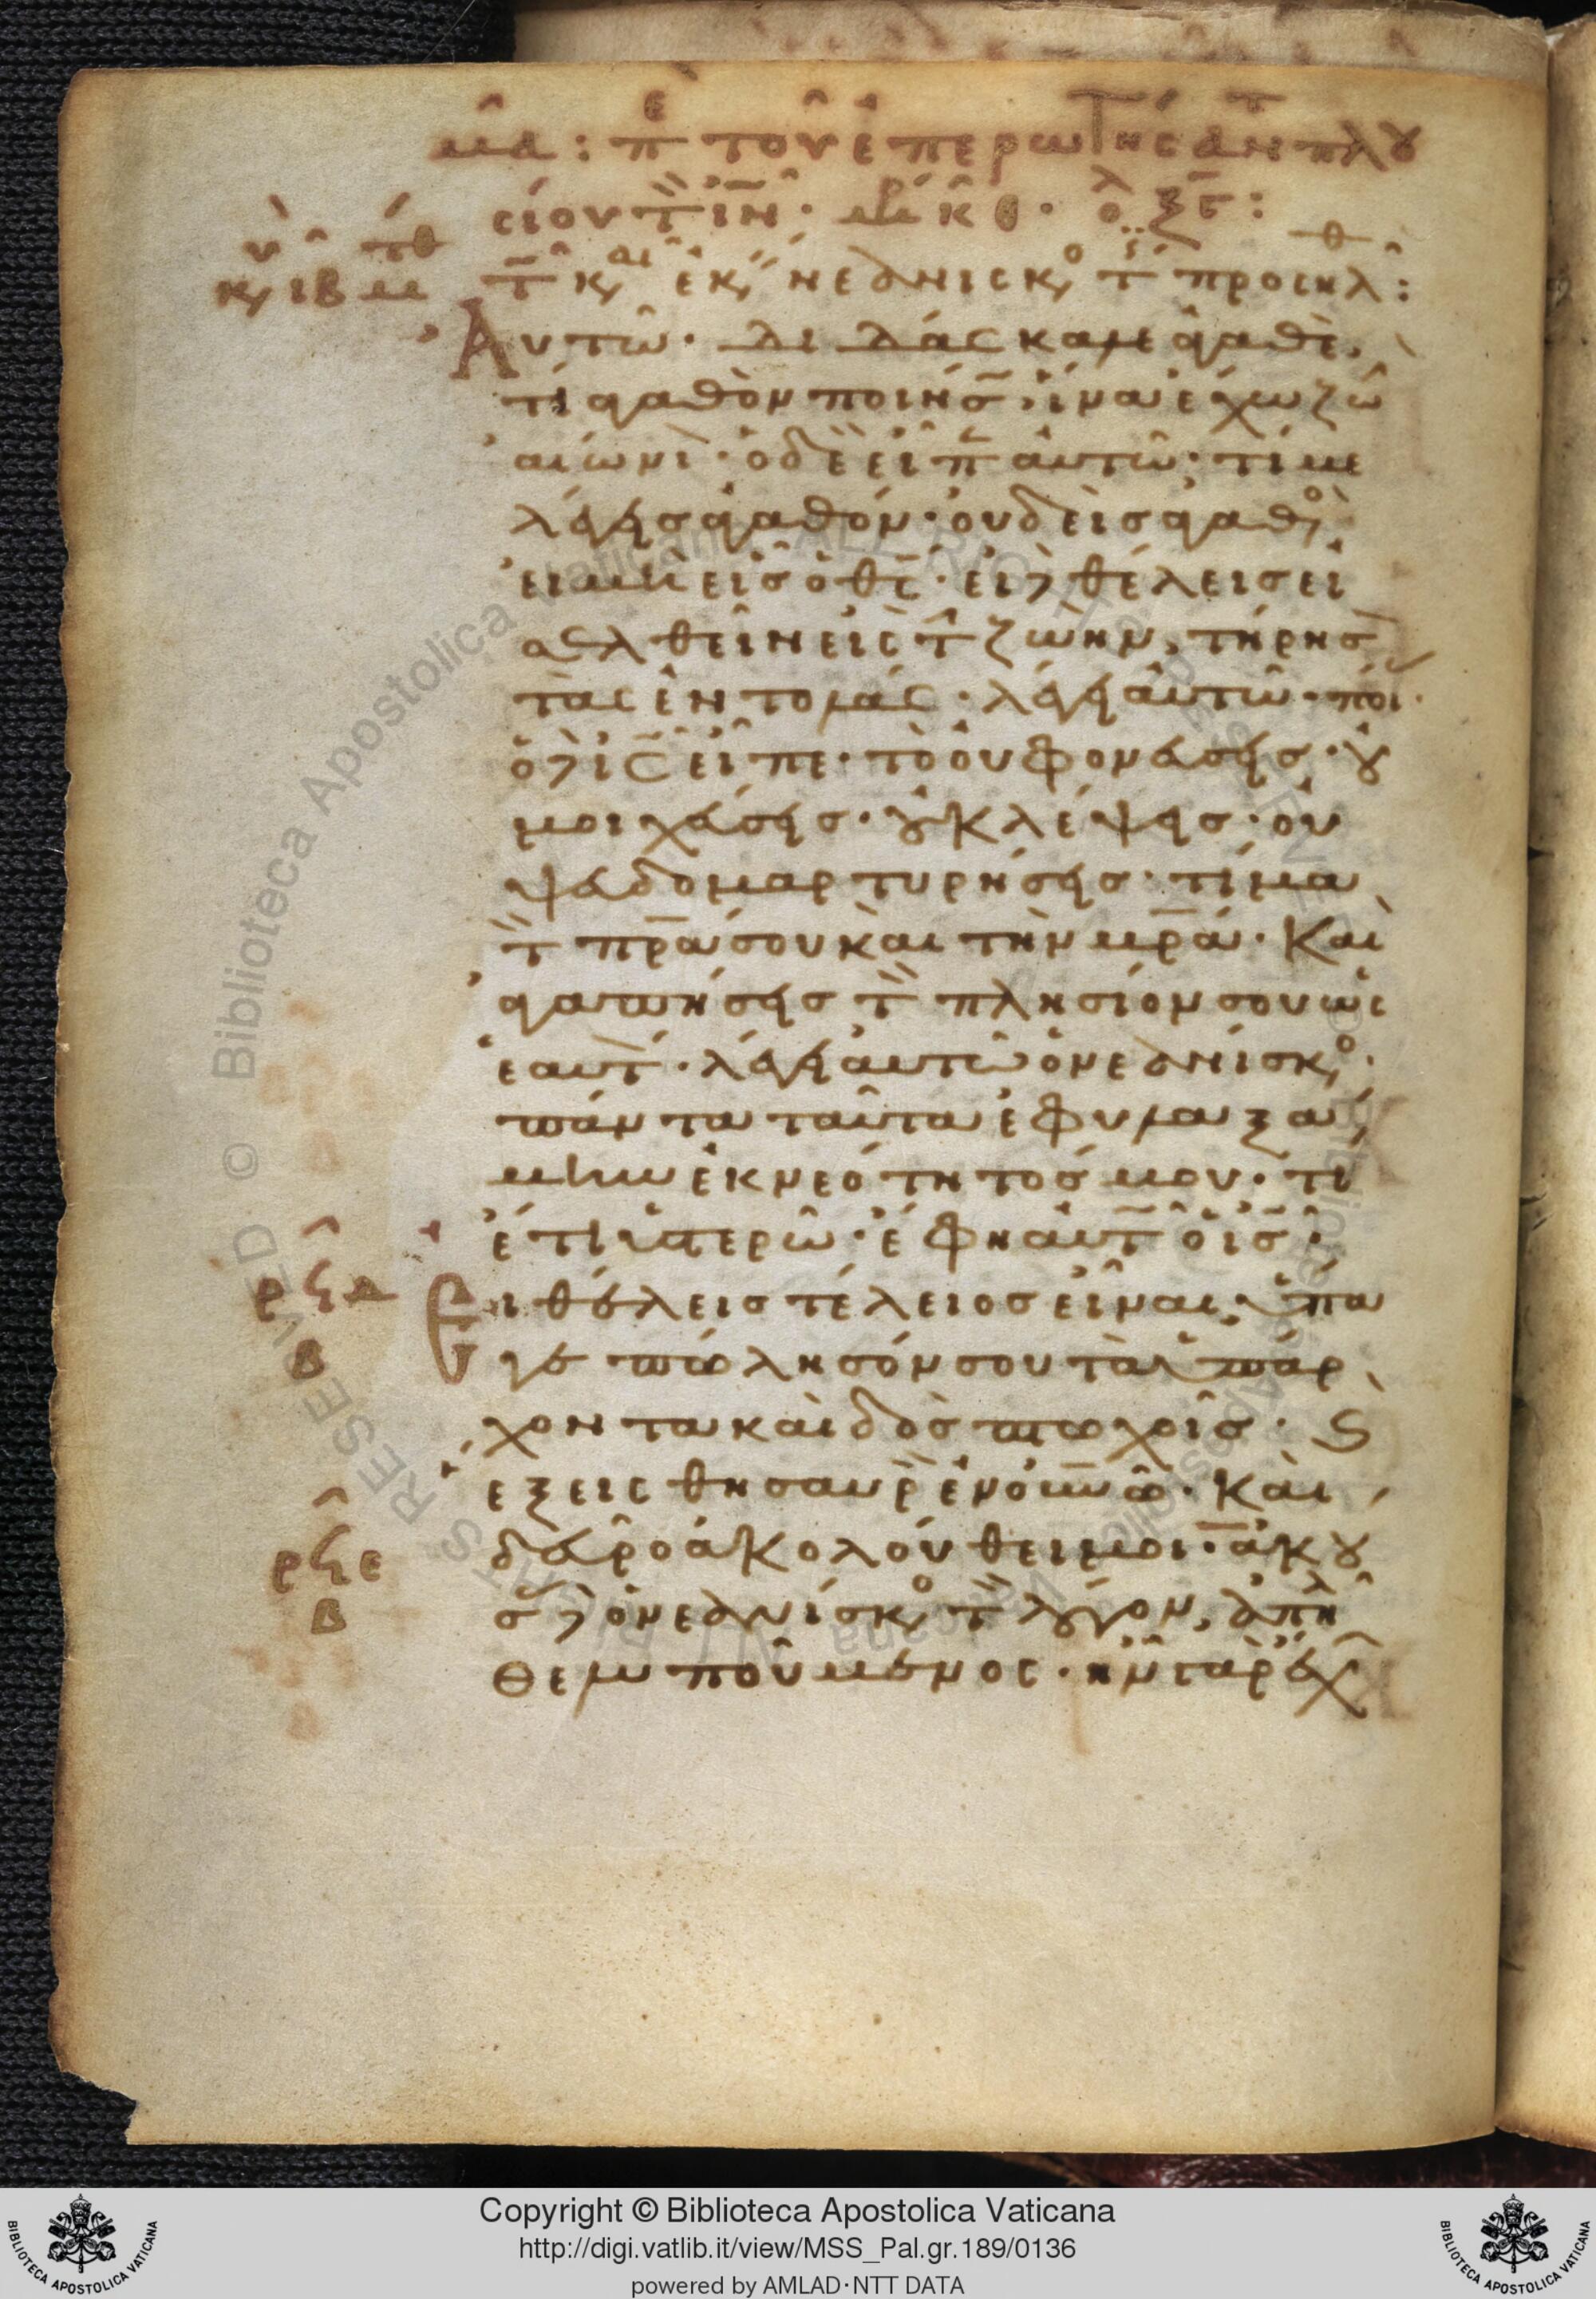 μα : πε τοῦ ἐπερωτήσαντ πλου
σίου τὸν ιν · μρ κθ · λο ξϛ :
κυ ιβ μτθ
τ κ, αι ἐκ, νεανίσκο τις προσηλθ :
Αυτῶ · διδάσκαλε ἀγαθὲ,
τί ἀγαθὸν ποιήσ, ἵνα ἔχω ζω
αἰώνι · ὁ δὲ εἶπ αὐτῶ · τί με
λέγεις ἀγαθόν · οὐδεὶς ἀγαθο
εἰ μὴ εἷς ὁ θς · εἰ δὲ θέλεις εἰ
σελθεῖν εἰς τ ζωὴν, τήρησ
τὰς ἐντολάς · λέγει αὐτῶ · ποί
ὁ δὲ ις εἶπε · τὸ οὐ φονεύσεις · οὐ
μοιχεύσεις · οὐ κλέψεις · οὐ
ψευδομαρτυρήσεις · τίμα
τ πρα σου καὶ τὴν μρα · Καὶ
ἀγαπήσεις τ πλησίον σου ὡς
ἑαυτ · λέγει αὐτῶ ὁ νεανίσκο ·
πάντα ταῦτα ἐφυλαξά
μην ἐκ νεότητος μου · τί
ἔτι ὑστερῶ · ἔφη αὐτ ὁ ις ·
ρϟδ
β
Ει θέλεις τέλειος εἶναι, ὕπα
γε πώλησόν σου τὰ ὑπάρ
χοντα καὶ δὸς πτωχοῖς · ϛ
ἕξεις θησαυρ ἐν οὐνω · Καὶ
ρϟε
β
δεῦρο ἀκολούθει μοι · ἀκού
σ δὲ ὁ νεανίσκο τ λόγον, ἀπῆλ
θε λυπούμενος · ἦν γὰρ ἔχ
Copyright © Biblioteca Apostolica Vaticana
http://digi.vatlib.it/view/MSS_Pal.gr.189/0136
powered by AMLAD·NTT DATA